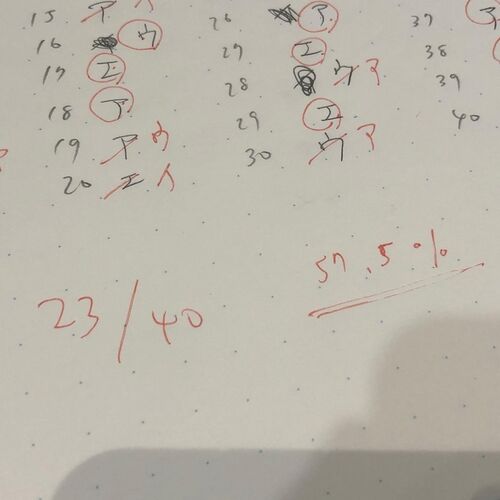 15 ア
16 ウ
17 エ
18 ア
19 ア ウ
20 エ イ
26 ア
27 エ
28 ウ ア
29 エ
30 ウ ア
37 ア
38
39
40
23/40
57.5%